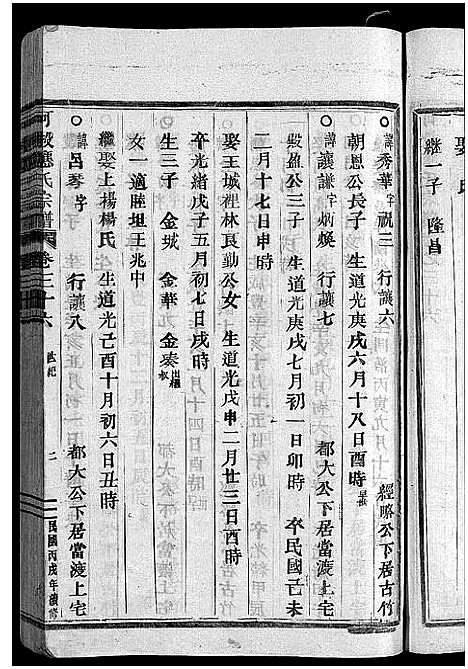 娶氏
繼一子 隆昌
諱秀華 字祝三 行讓六 經略公下居古竹
朝恩公長子 生道光庚戌六月十八日酉時
諱讓謙 字炳煥 行讓七 都大公下居當渡上宅
毅盈公三子 生道光庚戌七月初一日卯時 卒民國己未
二月十七日申時
娶王城裡林良勤公女 生道光戊申二月廿三日酉時
卒光緒戊子五月初七日戌時
生三子 金城 金華 金湊
女一 適睦坦王兆中
繼娶上楊楊氏 生道光己酉十月初六日丑時
諱呂琴 字 行讓八 都大公下居當渡上宅
可毅應氏宗譜 卷三十六 世紀 二 民國丙戌年續修